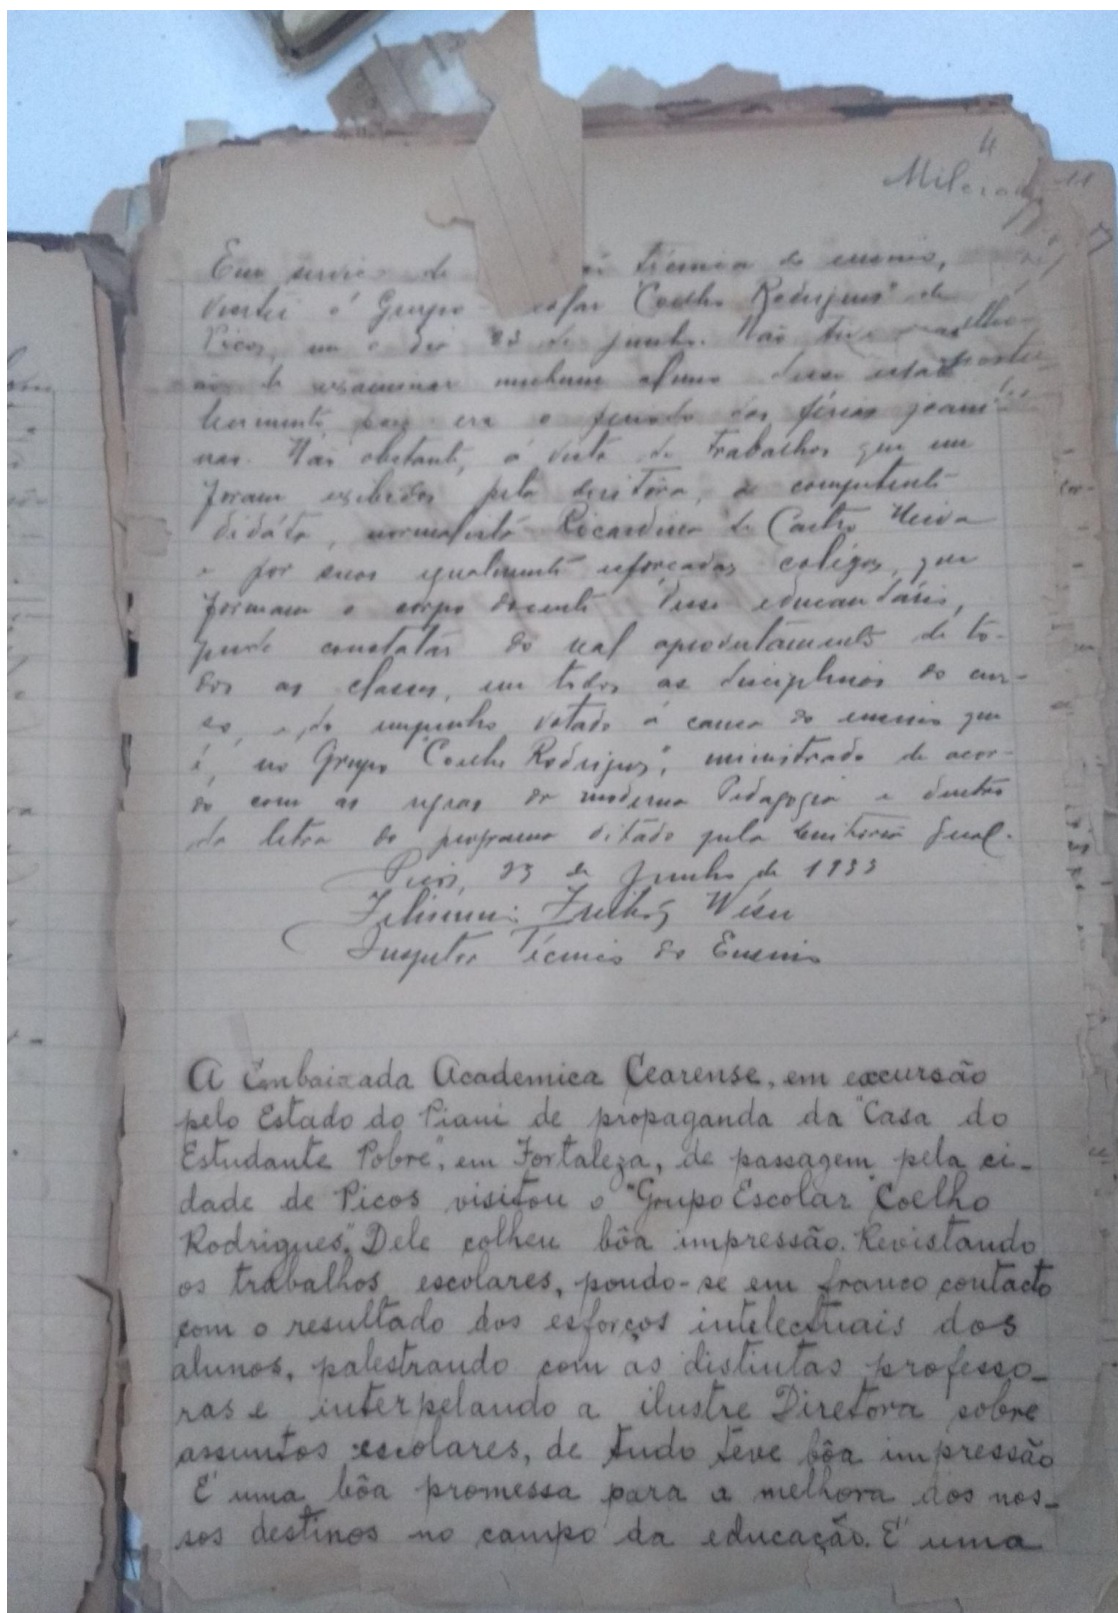 4
Em serviço de técnica do ensino,
visitei o Grupo Coelho Rodrigues" de
Picos, em o dia 23 de junho. Não tive
de examinar nenhum aluno desse
era o periodo das férias joani-
nas. Não obstante, á vista de trabalhos que me
foram exibidos pela diretora, a competente
didáta, normalista Ricardina de Castro Neiva
e por suas igualmente esforçadas colégas, que
formam o corpo docente desse educandário,
pude constatar do real aproveitamento de to-
das as classes, em todas as disciplinas do cur-
so, e do empenho votado á causa do ensino que
é, no Grupo "Coelho Rodrigues", ministrado de acor-
do com as regras da moderna Pedagogia e dentro
da letra do programa ditado pela Diretoria Geral.
Picos, 23 de Junho de 1933
Inspetor Técnico do Ensino
A Embaixada Academica Cearense, em excursão
pelo Estado do Piaui de propaganda da "Casa do
Estudante Pobre", em Fortaleza, de passagem pela ci-
dade de Picos visitou o "Grupo Escolar Coelho
Rodrigues". Dele colheu bôa impressão. Revistando
os trabalhos escolares, pondo-se em franco contacto
com o resultado dos esforços intelectuais dos
alunos, palestrando com as distintas professo-
ras e interpelando a ilustre Diretora sobre
assuntos escolares, de tudo teve bôa impressão
É uma bôa promessa para a melhora dos nos-
sos destinos no campo da educação. É uma